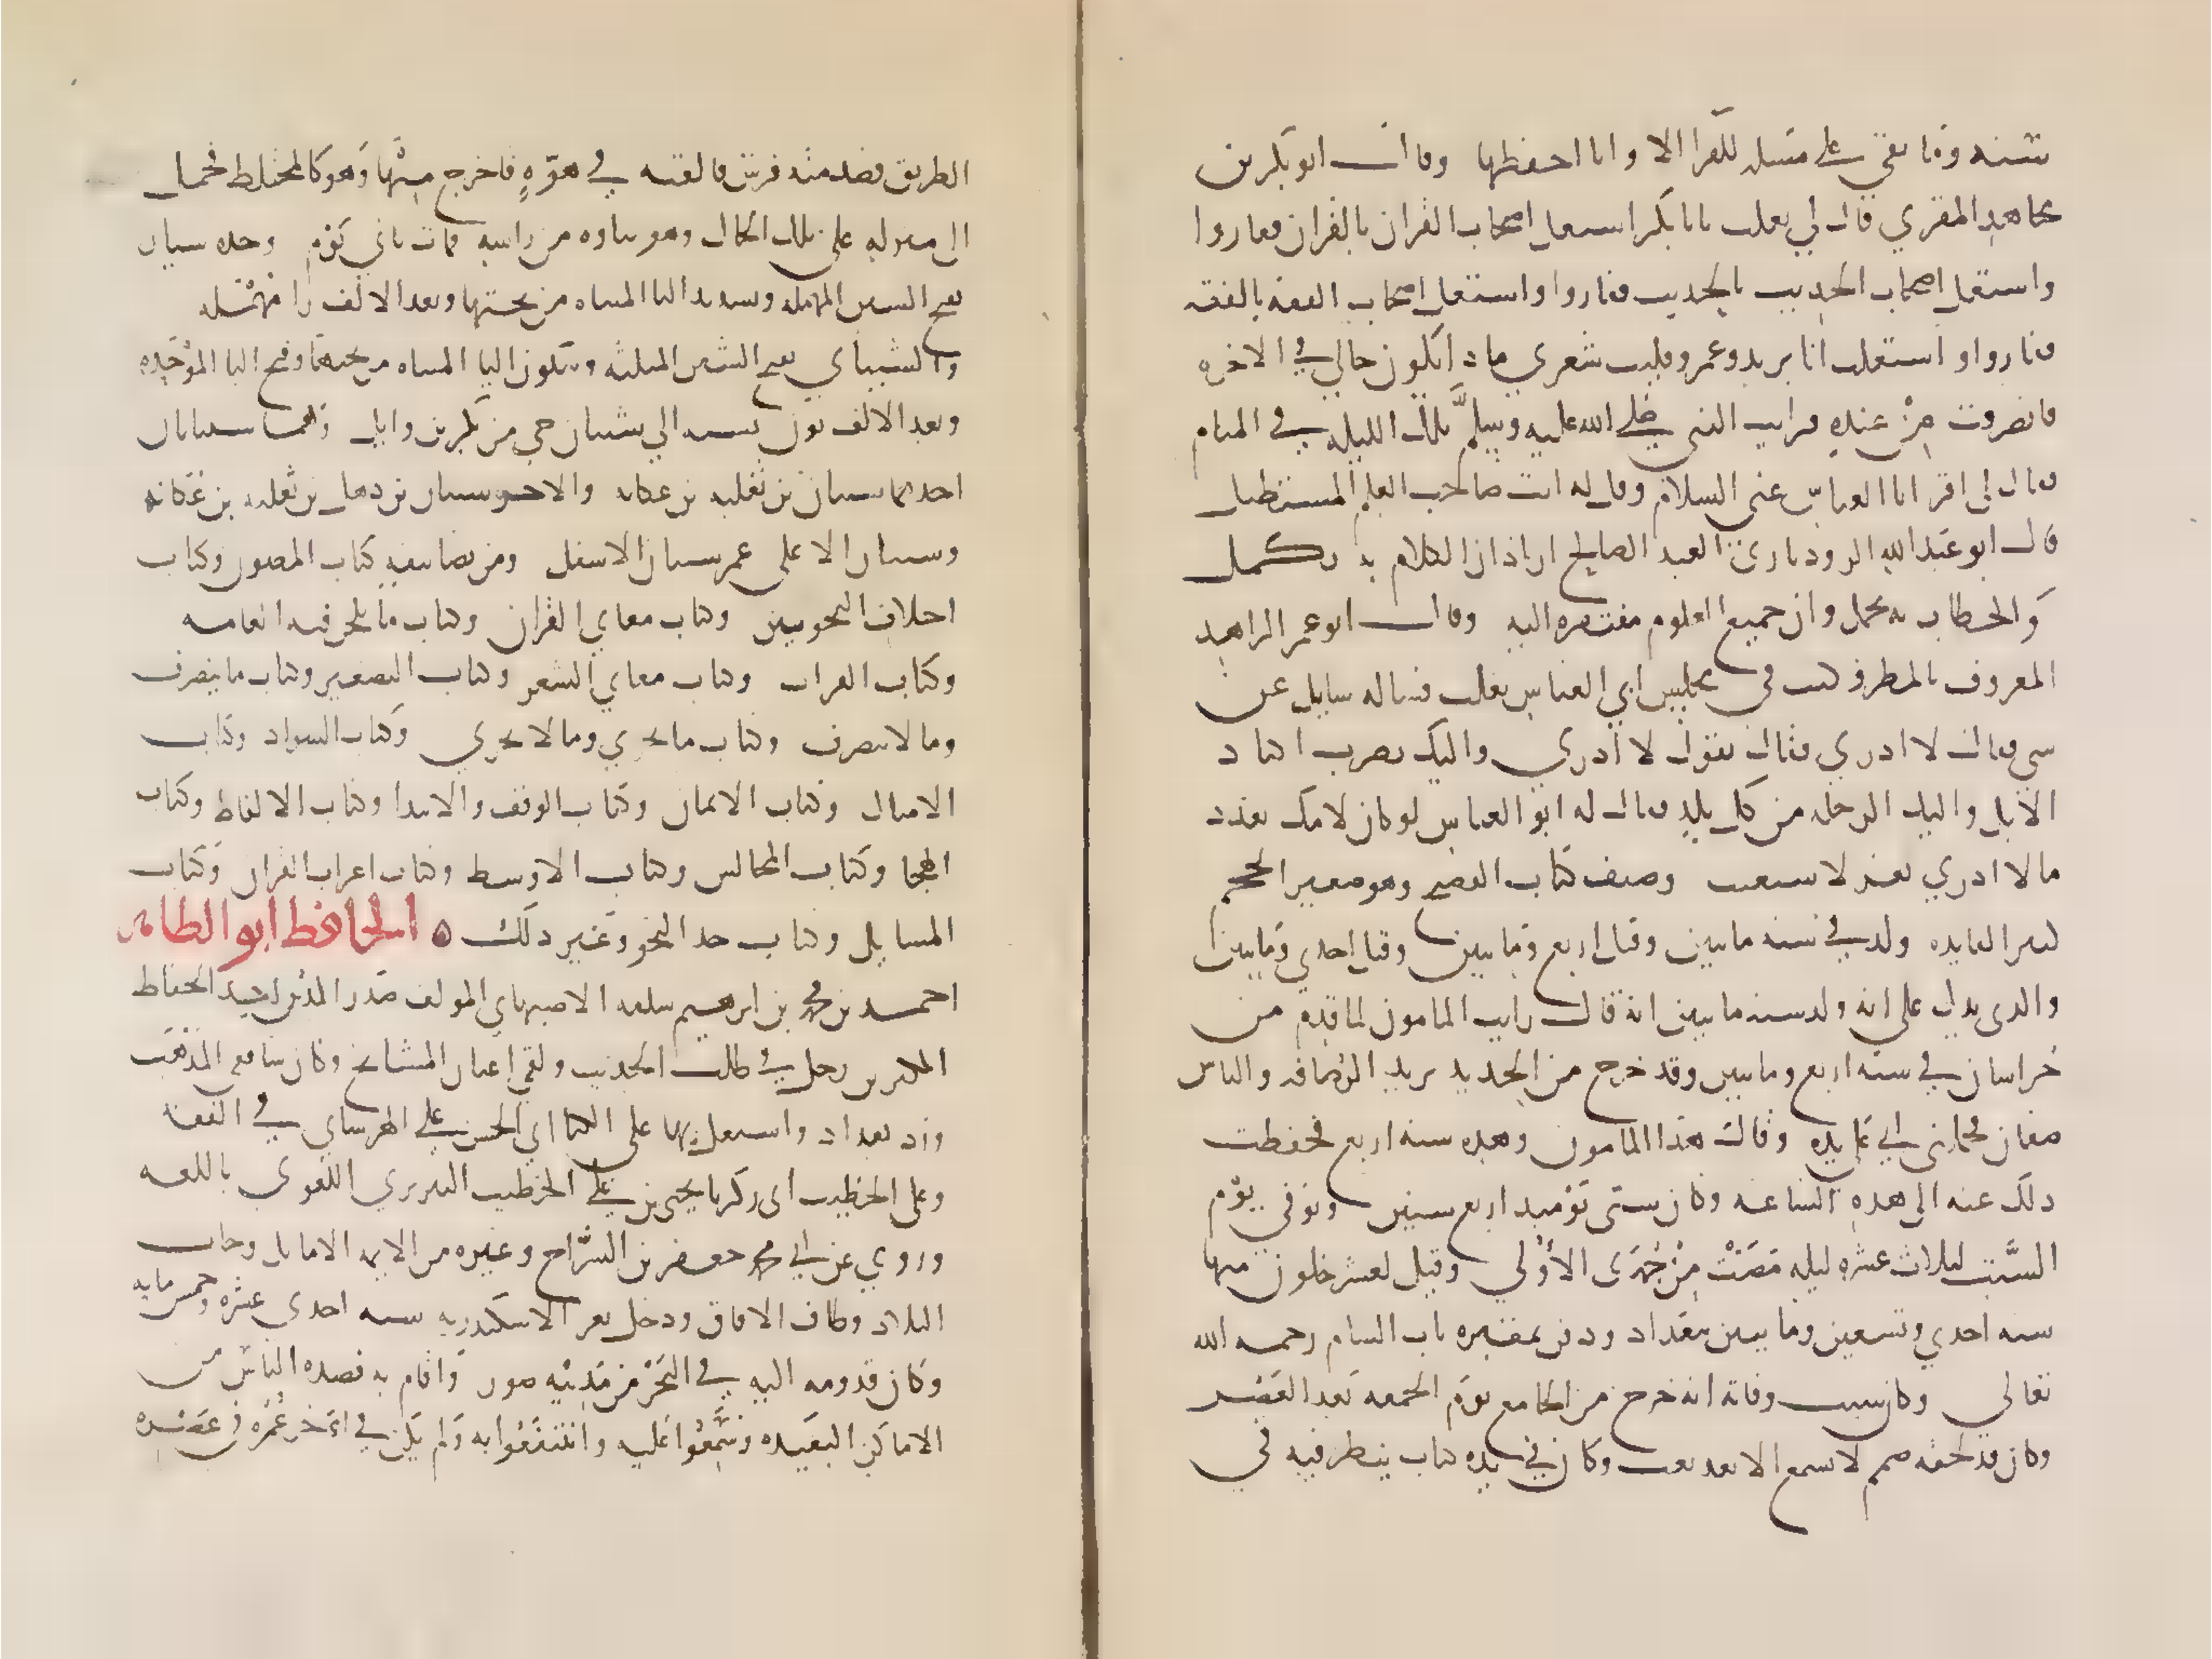 سنه وما بقي علي مسله للفرا الا وانا احفظها وقال ابو بكر بن
مجاهد المقري قال لي ثعلب يابا بكر اشتغل اصحاب القران بالقران ففازوا
واشتغل اصحاب الحديث بالحديث ففازوا واشتغل اصحاب الفقه بالفقه
ففازوا واشتغلت انا بزيد وعمرو فليت شعري ماذا يكون حالي في الاخره
فانصرفت من عنده فرايت النبي صلي الله عليه وسلم تلك الليله في المنام
فقال لي اقر ابا العباس عني السلام وقل له انت صاحب العلم المستطيل
قال ابو عبد الله الروذباري العبد الصالح اراد ان الكلام به يكمل
والخطاب به يجمل وان جميع العلوم مفتقره اليه وقال ابو عمر الزاهد
المعروف بالمطرز كنت في مجلس ابي العباس ثعلب فساله سايل عن
شي فقال لا ادري فقال تقول لا ادري واليك تضرب اكباد
الابل واليك الرحله من كل بلد فقال له ابو العباس لو كان لامك بعدد
مالا ادري بعر لاستغنت وصنف كتاب الفصيح وهو صغير الحجم
كثير الفايده ولد في سنه مايتين وقيل اربع ومايتين وقيل احدي ومايتين
والذي يدل علي انه ولد سنه مايتين انه قال رايت المامون لما قدم من
خراسان في سنه اربع ومايتين وقد خرج من الحديد يريد الرصافه والناس
صفان فحملني ابي علي يده وقال هذا المامون وهذه سنه اربع فحفظت
ذلك عنه الي هذه الساعه وكان سني يوميد اربع سنين وتوفي يوم
السبت لثلاث عشره ليله مضت من جمدى الاولي وقيل لعشر خلون منها
سنه احدي وتسعين ومايتين ببغداد ودفن بمقبره باب الشام رحمه الله
تعالي وكان سبب وفاته انه خرج من الجامع يوم الجمعه بعد العصر
وكان قد لحقه صمم لا يسمع الا بعد تعب وكان في يده كتاب ينظر فيه في
الطريق فصدمته فرس فالقته في هوه فاخرج منها وهو كالمختلط فحمل
الي منزله علي تلك الحال وهو يتاوه من راسه فمات ثاني يوم وجده سيار
بفتح السين المهمله وتشديد اليا المثناه من تحتها وبعد الالف را مهمله
والشيباني بفتح الشين المثلثه وسكون اليا المثناه من تحتها وفتح البا الموحده
وبعد الالف نون نسبه الي شيبان حي من بكر بن وايل وهما شيبانان
احدهما شيبان بن ثعلبه بن عكابه والاخر شيبان بن ذهل بن ثعلبه بن عكابه
وشيبان الاعلي عم شيبان الاسفل ومن تصانيفه كتاب المصون وكتاب
اختلاف النحويين وكتاب معاني القران وكتاب ما يلحن فيه العامه
وكتاب القراات وكتاب معاني الشعر وكتاب التصغير وكتاب ما ينصرف
وما لا ينصرف وكتاب ما يجري وما لا يجري وكتاب الشواذ وكتاب
الامثال وكتاب الايمان وكتاب الوقف والابتدا وكتاب الالفاظ وكتاب
الهجا وكتاب المجالس وكتاب الاوسط وكتاب اعراب القران وكتاب
المسايل وكتاب حد النحو وغير ذلك ۞ الحافظ ابو الطاهر
احمد بن محمد بن ابرهيم سلفه الاصبهاني المولف صدر الدين احد الحفاظ
المكثرين رحل في طلب الحديث ولقي اعيان المشايخ وكان شافعي المذهب
ورد بغداد واشتغل بها علي الكيا ابي الحسن علي الهراسي في الفقه
وعلي الخطيب ابي زكريا يحيى بن علي الخطيب التبريزي اللغوي باللغه
وروي عن ابي محمد جعفر بن السراج وغيره من الايمه الاماثل وجاب
البلاد وطاف الافاق ودخل ثغر الاسكندريه سنه احدي عشره وخمس مايه
وكان قدومه اليه في البحر من مدينه صور واقام به قصده الناس من
الاماكن البعيده وسمعوا عليه وانتفعوا به ولم يكن في اخر عمره في عصره